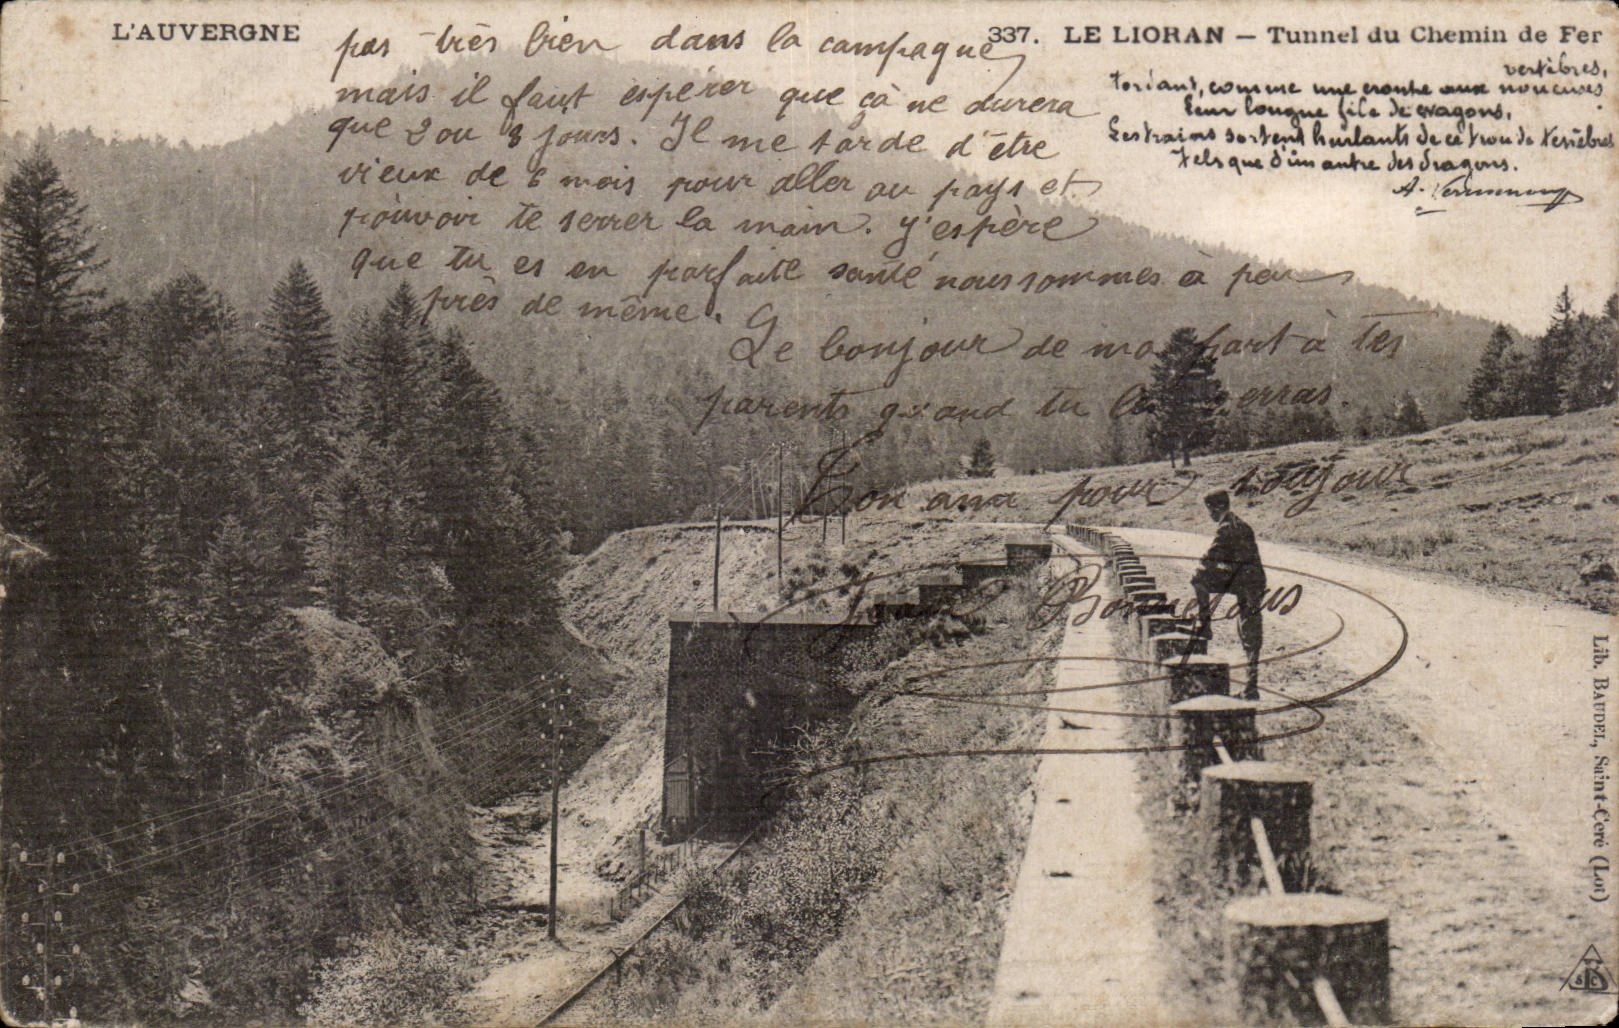 L'AUVERGNE
337. LE LIORAN — Tunnel du Chemin de Fer
pas très bien dans la campagne
mais il faut espérer que çà ne durera
que 2 ou 3 jours. Il me tarde d'être
vieux de 6 mois pour aller au pays et
pouvoir te serrer la main. J'espère
que tu es en parfaite santé nous sommes à peu
près de même.
Le bonjour de ma part à tes
parents quand tu les verras.
Ton ami pour toujour
Bonnefous
vertèbres,
Tordant, comme une croupe aux noueuses
Leur longue file de wagons,
Les trains sortent hurlants de ce trou de ténèbres
Tels que d'un antre des dragons.
A.
Lib. BAUDEL, Saint-Céré (Lot)